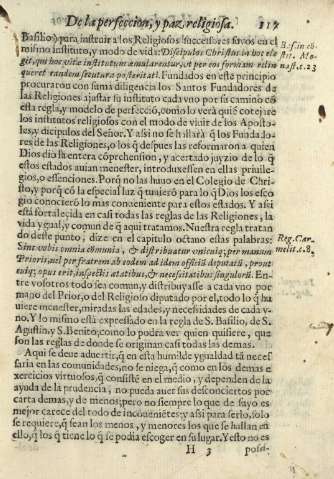 De la perfeccion, y paz religiosa. 117
Basilio) para instruir a los Religiosos successores suyos en el
mismo instituto, y modo de vida: Discipulos Christus in hoc ele
git, qui hoc vitæ institutum æmularentur, vt per eos formam relin
queret eandem secutura posteritati. Fundados en este principio
procuraron con suma diligencia los Santos Fundadores de
las Religiones ajustar su instituto cada vno por su camino có
esta regla, y modelo de perfecció, como lo verá quié cotejare
los institutos religiosos con el modo de viuir de los Aposto-
les, y dicipulos del Señor. Y assi no se hallarà q̃ los Fundado-
res de las Religiones, o los q̃ despues las reformaron a quien
Dios dio la entera cóprehension, y acertado juyzio de lo q̃
estos estados auian menester, introduxessen en ellas priuile-
gios, o essenciones. Porq̃ no las huuo en el Colegio de Chris-
to, y porq̃ có la especial luz q̃ tuuieró para lo q̃ Dios los esco
gio conocieró lo mas conueniente para estos estados. Y assi
està fortalecida en casi todas las reglas de las Religiones, la
vida ygual, y comun de q̃ aqui tratamos. Nuestra regla tratan
do deste punto, dize en el capitulo octauo estas palabras:
Sint vobis omnia communia, & distribuatur vnicuiq; per manum
Prioris, vel per fratrem ab eodem ad idem officiũ deputatũ, prout
cuiq; opus erit, inspectis ætatibus, & necessitatibus singulorũ. En-
tre vosotros todo sea comun, y distribuyasse a cada vno por
mano del Prior, o del Religioso diputado por el, todo lo q̃ ha
uiere menester, miradas las edades, y necessidades de cada v-
no. Y lo mismo està expressado en la regla de S. Basilio, de S.
Agustin, y S. Benito, como lo podrà ver quien quisiere, que
son las reglas de donde se originan casi todas las demas.
Aqui se deue aduertir, q̃ en esta humilde ygualdad tã neces
saria en las comunidades, no se niega, q̃ como en los demas e
xercicios virtuosos, q̃ consistẽ en el medio, y dependen de la
ayuda de la prudencia, no pueda auer sus desconciertos por
carta demas, y de menos; pero no siempre lo que de suyo es
mejor carece del todo de incouenietes; y assi para serlo, solo
se requiere, q̃ sean los menos, y menores los que se hallan en
ello, q̃ los q̃ tiene lo q̃ se podia escoger en su lugar. Y esto no es
H 3 possi-
B. s. in cõ
stit. Mo-
nast. c. 23
Reg. Car-
melit. c. 8.